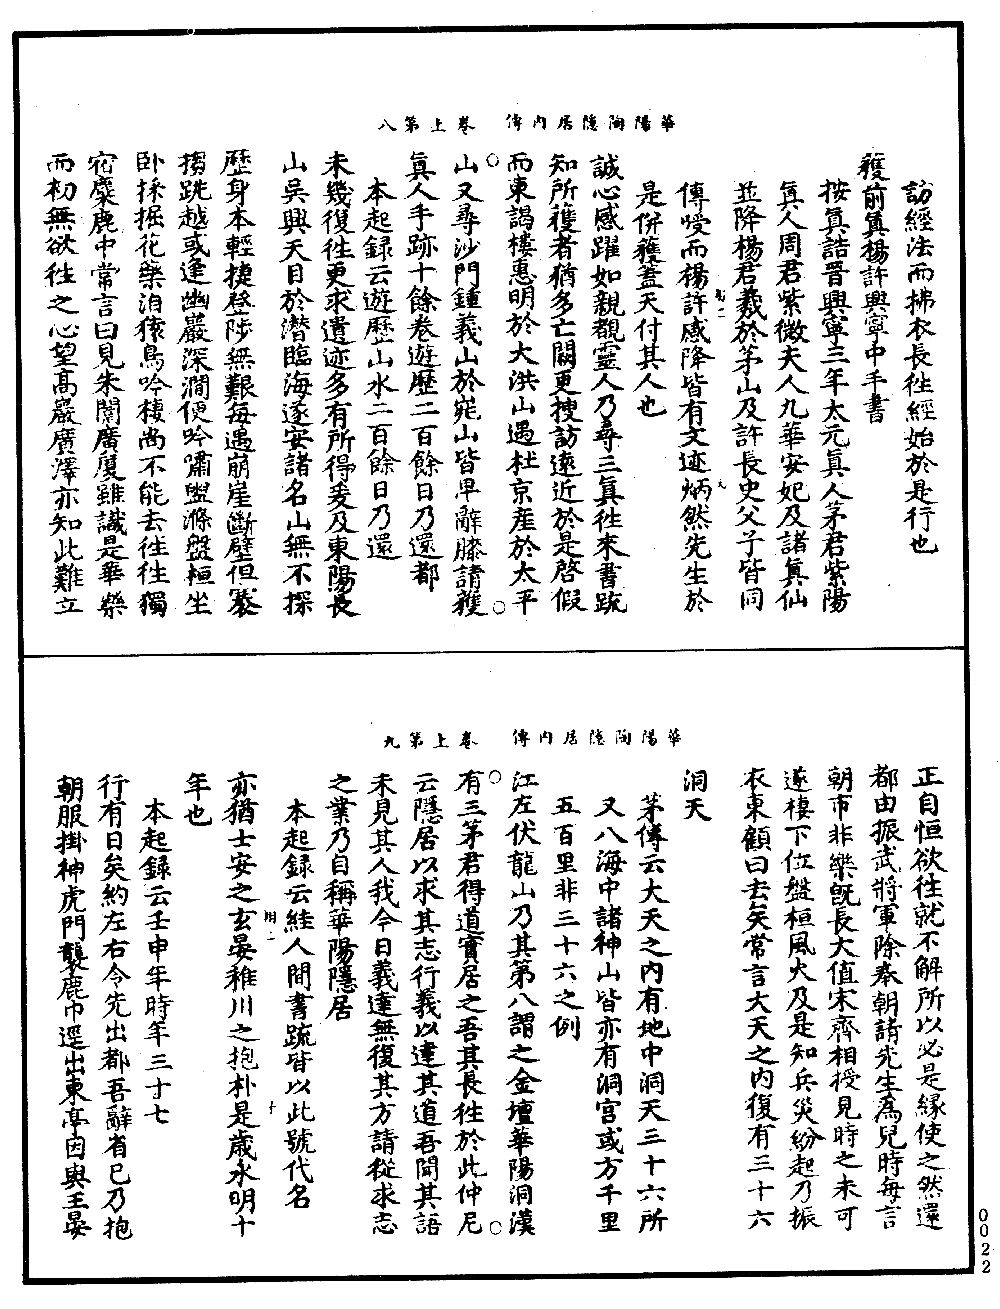 華陽陶隱居內傳 卷上第八
訪經法而拂衣長往經始於是行也
穫前真楊許興寧中手書
按真誥晋興寧三年太元真人茅君紫陽
真人周君紫微夫人九華安妃及諸真仙
並降楊君羲於茅山及許長史父子皆同
傳受而楊許感降皆有文迹炳然先生於
是併穫蓋天付其人也
誠心感躍如親覩靈人乃尋三真往來書疏
知所穫者猶多亡闕更搜訪遠近於是啓假
而東謁樓惠明於大洪山遇杜京産於太平
山又尋沙門鍾義山於
山皆卑辭膝請穫
真人手跡十餘卷遊歷二百餘日乃還都
本起録云遊歷山水二百餘日乃還
未幾復往更求遺迹多有所得爰及東陽長
山吳興天目於潛臨海遂安諸名山無不探
歷身本輕捷登陟無艱每遇崩崖斷壁但褰
搊跣越或逢幽巖深澗便吟嘯盥滌盤桓坐
卧採掘花藥泊猿鳥吟棲尚不能去往往獨
宿麋鹿中常言曰見朱闕廣廈雖識是華樂
而初無欲往之心望高巖廣澤亦知此難立
華陽陶隱居內傳 卷上第九
正自恒欲往就不解所以必是緣使之然還
都由振武將軍除奉朝請先生為兒時每言
朝市非樂旣長大值宋齊相授見時之未可
遂棲下位盤桓風火及是知兵災紛起乃振
衣東顧曰去矣常言大天之内復有三十六
洞天
茅傳云大天之内有地中洞天三十六所
又八海中諸神山皆亦有洞宫或方千里
五百里非三十六之例
江左伏龍山乃其第八謂之金壇華陽洞漢
有三茅君得道實居之吾其長往於此仲尼
云隱居以求其志行義以達其道吾聞其語
未見其人我今日義達無復其方請從求志
之業乃自稱華陽隱居
本起録云絓人間書疏皆以此號代名
亦猶士安之玄晏稚川之抱朴是歲永明十
年也
本起録云壬申年時年三十七
行有日矣約左右令先出都吾辭省已乃抱
朝服掛神虎門襲鹿巾逕出東亭因與王晏
0022